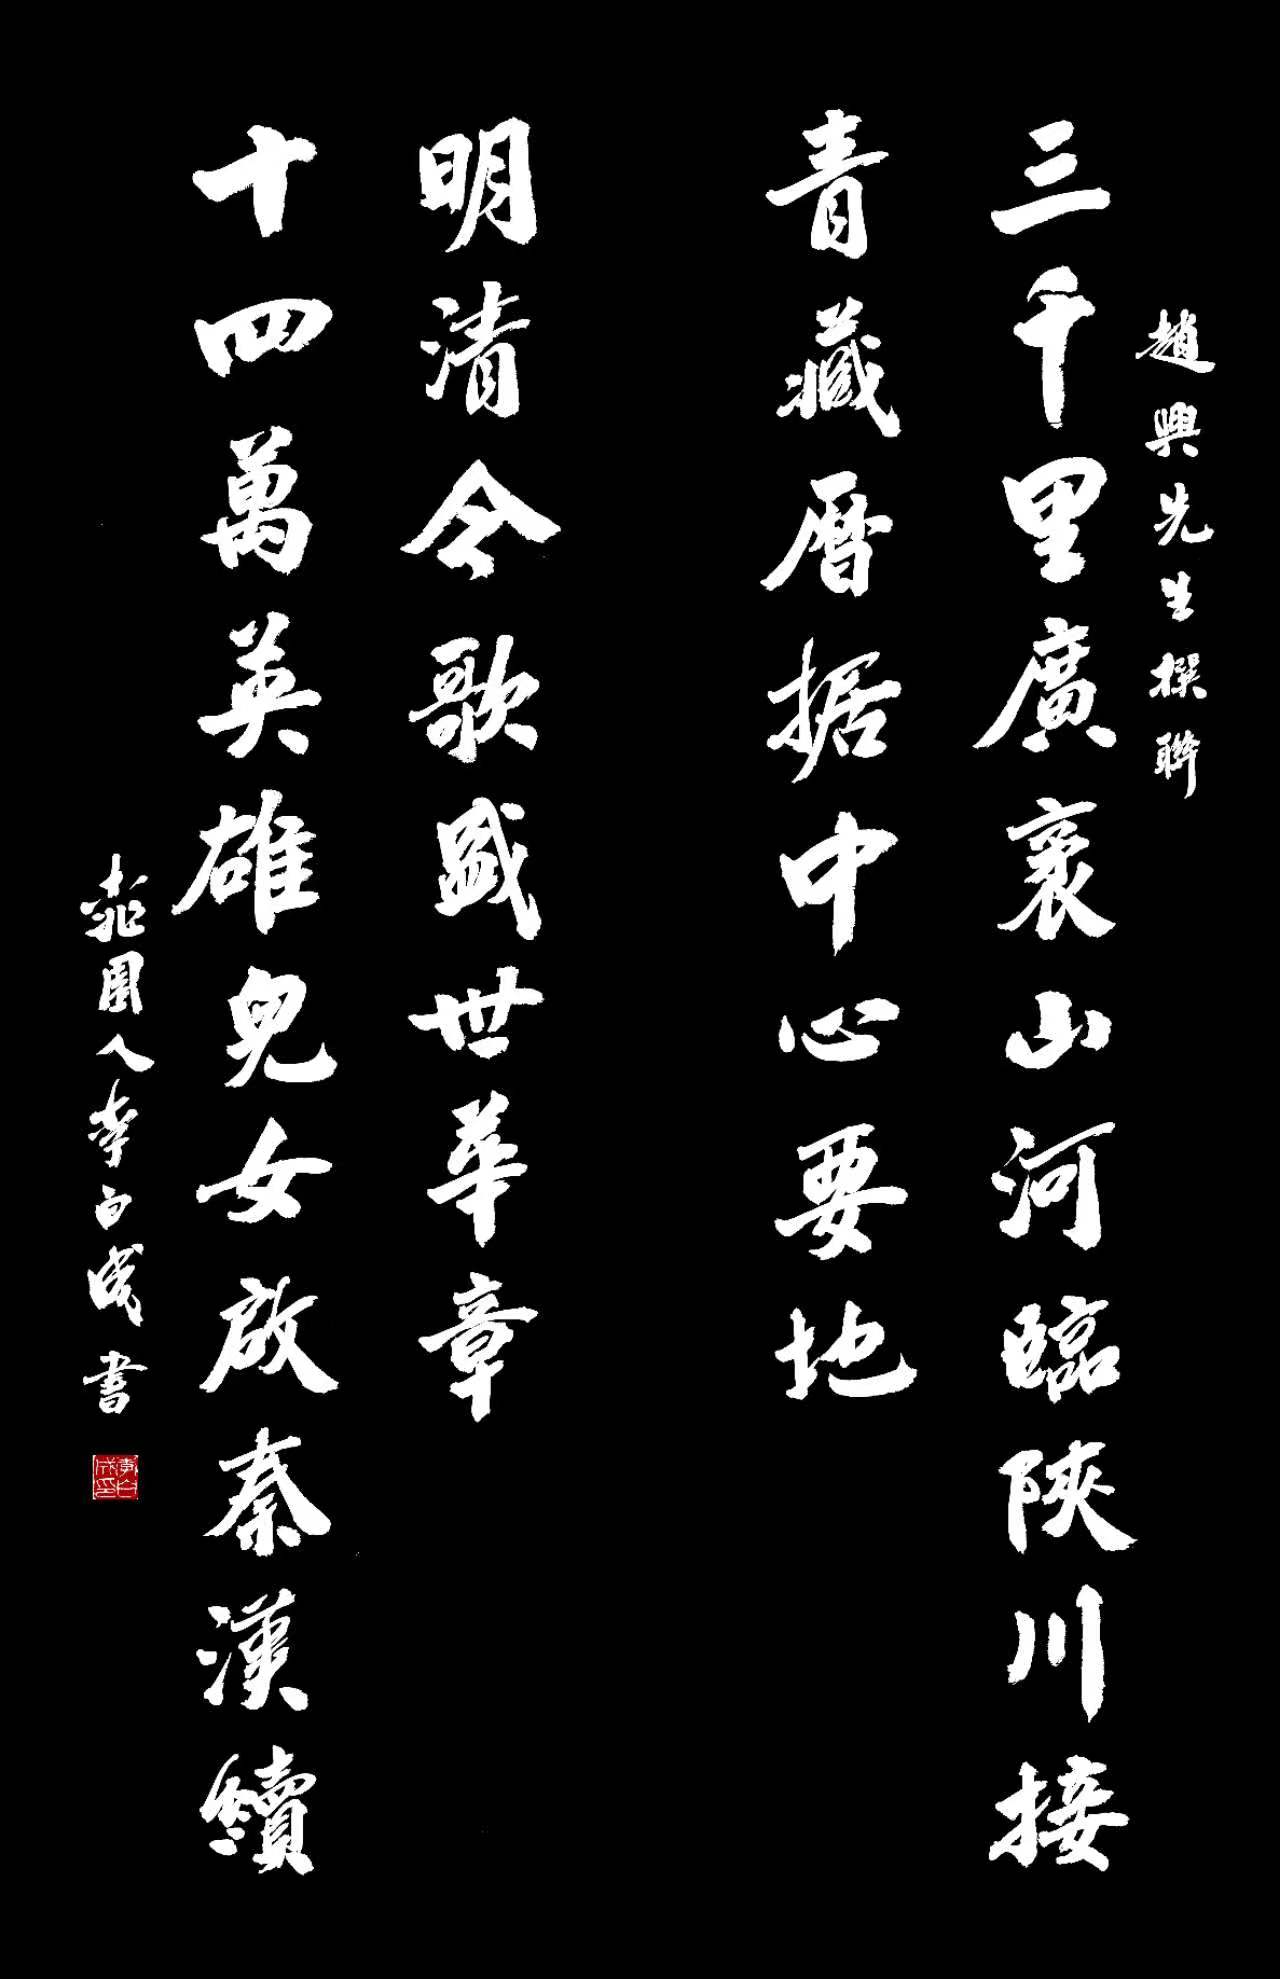 趙興先生撰聯
三千里廣袤山河臨陝川接
青藏曆据中心要地
十四萬英雄兒女啟秦漢續
明清今歌盛世華章
桃園人李白成書
李白成印